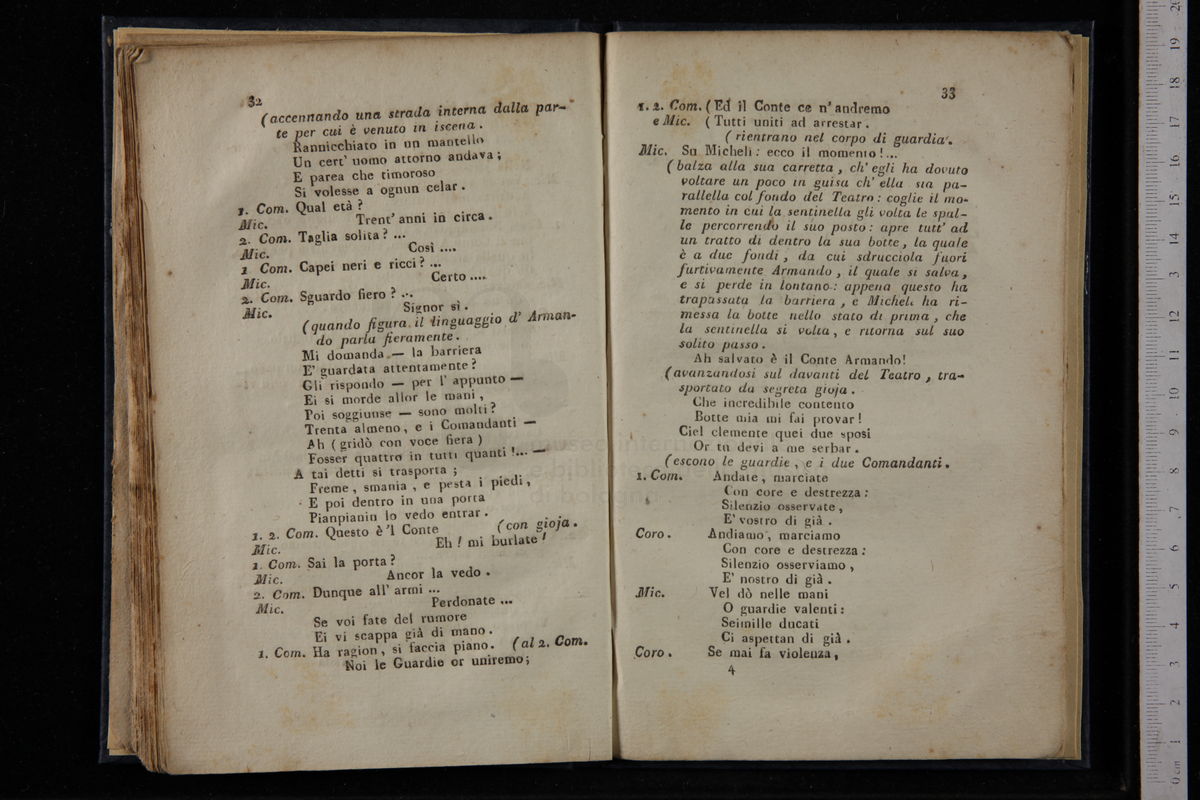 32
(accennando una strada interna dalla par-
te per cui è venuto in iscena.
Rannicchiato in un mantello
Un cert' uomo attorno andava;
E parea che timoroso
Si volesse a ognun celar.
1. Com. Qual età?
Mic. Trent' anni in circa.
2. Com. Taglia solita? ...
Mic. Così ....
1 Com. Capei neri e ricci? ...
Mic. Certo ....
2. Com. Sguardo fiero? ...
Mic. Signor sì.
(quando figura il linguaggio d' Arman-
do parla fieramente.
Mi domanda — la barriera
E' guardata attentamente?
Gli rispondo — per l' appunto —
Ei si morde allor le mani,
Poi soggiunse — sono molti?
Trenta almeno, e i Comandanti —
Ah (gridò con voce fiera)
Fosser quattro in tutti quanti!... —
A tai detti si trasporta;
Freme, smania, e pesta i piedi,
E poi dentro in una porta
Pianpianin lo vedo entrar.
1. 2. Com. Questo è 'l Conte (con gioja.
Mic. Eh! mi burlate!
1. Com. Sai la porta?
Mic. Ancor la vedo.
2. Com. Dunque all' armi ...
Mic. Perdonate ...
Se voi fate del rumore
Ei vi scappa già di mano.
1. Com. Ha ragion, si faccia piano. (al 2. Com.
Noi le Guardie or uniremo;
33
1. 2. Com. (Ed il Conte ce n' andremo
e Mic. (Tutti uniti ad arrestar.
(rientrano nel corpo di guardia.
Mic. Su Micheli: ecco il momento!...
(balza alla sua carretta, ch' egli ha dovuto
voltare un poco in guisa ch' ella sia pa-
rallella col fondo del Teatro: coglie il mo-
mento in cui la sentinella gli volta le spal-
le percorrendo il suo posto: apre tutt' ad
un tratto di dentro la sua botte, la quale
è a due fondi, da cui sdrucciola fuori
furtivamente Armando, il quale si salva,
e si perde in lontano: appena questo ha
trapassata la barriera, e Micheli ha ri-
messa la botte nello stato di prima, che
la sentinella si volta, e ritorna sul suo
solito passo.
Ah salvato è il Conte Armando!
(avanzandosi sul davanti del Teatro, tra-
sportato da segreta gioja.
Che incredibile contento
Botte mia mi fai provar!
Ciel clemente quei due sposi
Or tu devi a me serbar.
(escono le guardie, e i due Comandanti.
1. Com. Andate, marciate
Con core e destrezza:
Silenzio osservate,
E' vostro di già.
Coro. Andiamo, marciamo
Con core e destrezza:
Silenzio osserviamo,
E' nostro di già.
Mic. Vel dò nelle mani
O guardie valenti:
Seimille ducati
Ci aspettan di già.
Coro. Se mai fa violenza,
4